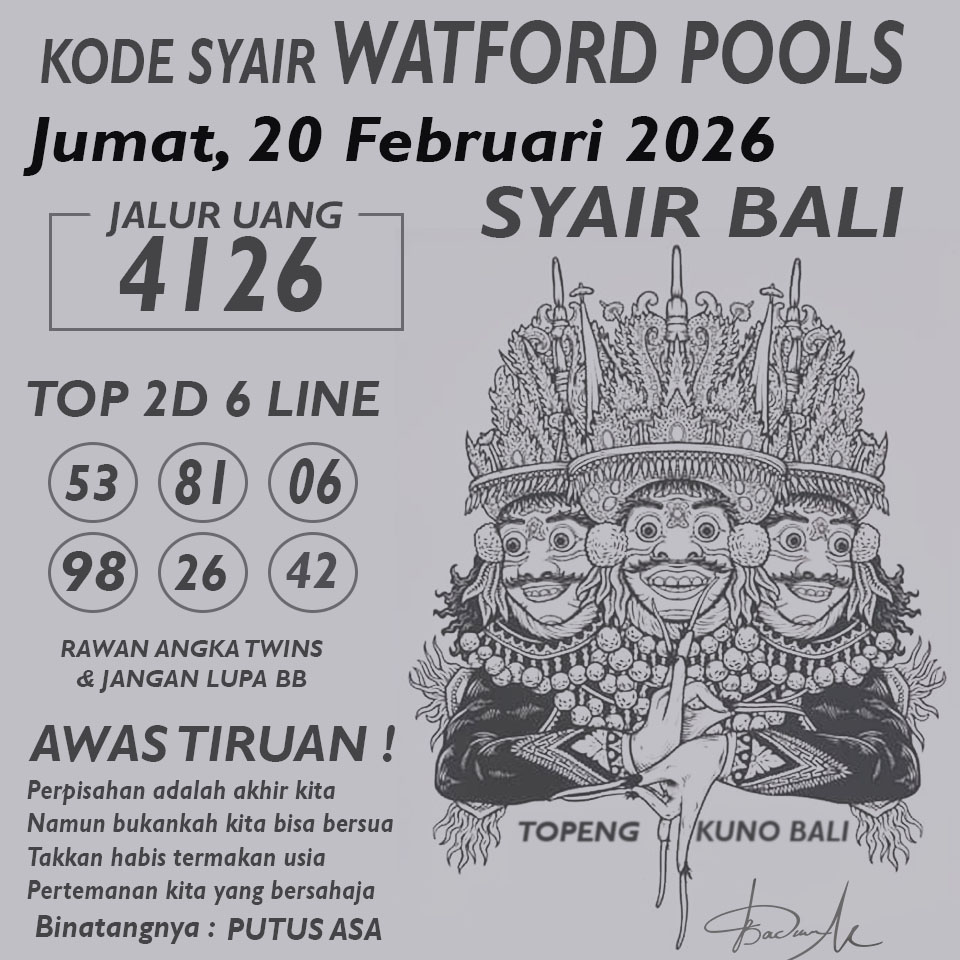 KODE SYAIR WATFORD POOLS
Jumat, 20 Februari 2026
SYAIR BALI
JALUR UANG
4126
TOP 2D 6 LINE
53 81 06
98 26 42
RAWAN ANGKA TWINS
& JANGAN LUPA BB
AWAS TIRUAN !
Perpisahan adalah akhir kita
Namun bukankah kita bisa bersua
Takkan habis termakan usia
Pertemanan kita yang bersahaja
Binatangnya : PUTUS ASA
TOPENG KUNO BALI